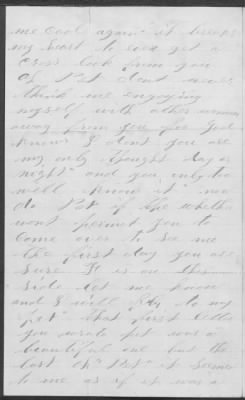 me cool again" it breaks
my heart to ever get a
cross look from you
Oh Pet dont never
think me engaging
myself with other women
away from you for God
knows I dont you are
my only thought day or
night" and you only too
well know it" now
do Pet if the whether
wont permit you to
come over to see me
the first day you are
sure He is on this
side let me know
and I will fly to my
pet" that first letter
you wrote pet was a
beautiful one but the
last oh it seems
to me as if it was a